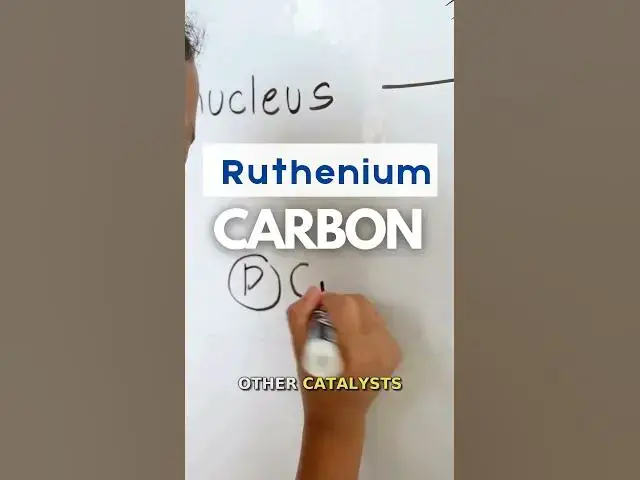 nucleus
Ruthenium
CARBON
Ⓟ C
OTHER CATALYSTS